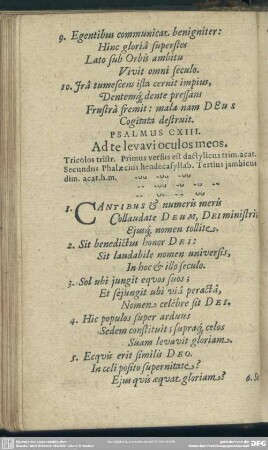 9. Egentibus communicat. benigniter:
Hinc gloriâ superstes
Lato sub Orbis ambitu
Vivit omni seculo.
10. Irâ tumescens ista cernit impius,
Dentemq́; dente pressans
Frustrà fremit: mala nam DEus
Cogitata destruit.
PSALMUS CXIII.
Ad te levavi oculos meos.
Tricolos tristr. Primus versus est dactylicus trim. acat.
Secundus Phalæcius hendecasyllab. Tertius jambicus
dim. acat. h.m.
1. CANTIBUS & numeris meris
Collaudate DEUM, DEI ministri,
Ejusq́; nomen tollite.
2. Sit benedictus honor DEI:
Sit laudabile nomen universis,
In hoc & illo seculo.
3. Sol ubi jungit equos suos;
Et sejungit ubi viâ peractâ,
Nomen celebre sit DEI.
4. Hic populos super arduus
Sedem constituit; supraq́; celos
Suam levavit gloriam.
5. Ecqvis erit similis DEO.
In celi posito supernitate?
Ejus qvis æquat gloriam?